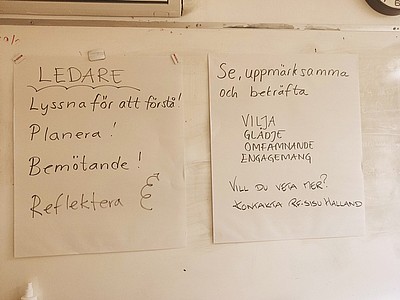 LEDARE
Lyssna för att förstå!
Planera!
Bemötande!
Reflektera
Se, uppmärksamma
och bekräfta
VILJA
GLÄDJE
OMFAMNANDE
ENGAGEMANG
VILL DU VETA MER?
KONTAKTA RF-SISU HALLAND